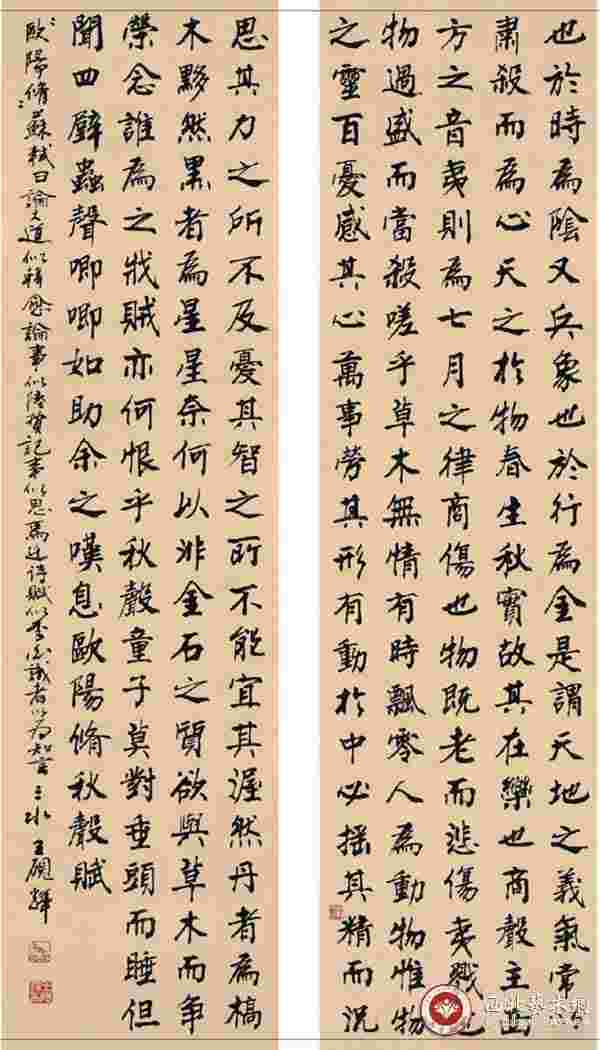 也於時為陰又兵象也於行為金是謂天地之義氣常
肅殺而為心天之於物春生秋實故其在樂也商聲主西
方之音夷則為七月之律商傷也物既老而悲傷夷戮也
物過盛而當殺嗟乎草木無情有時飄零人為動物惟物
之靈百憂感其心萬事勞其形有動於中必搖其精而況
思其力之所不及憂其智之所不能宜其渥然丹者為槁
木黟然黑者為星星奈何以非金石之質欲與草木而爭
榮念誰為之戕賊亦何恨乎秋聲童子莫對垂頭而睡但
聞四壁蟲聲唧唧如助余之嘆息歐陽脩秋聲賦
歐陽脩蘇軾曰論大道似韓愈論事似陸贄記事似思馬迁詩賦似李白識者以為知言三水王硯輝
西北藝术網